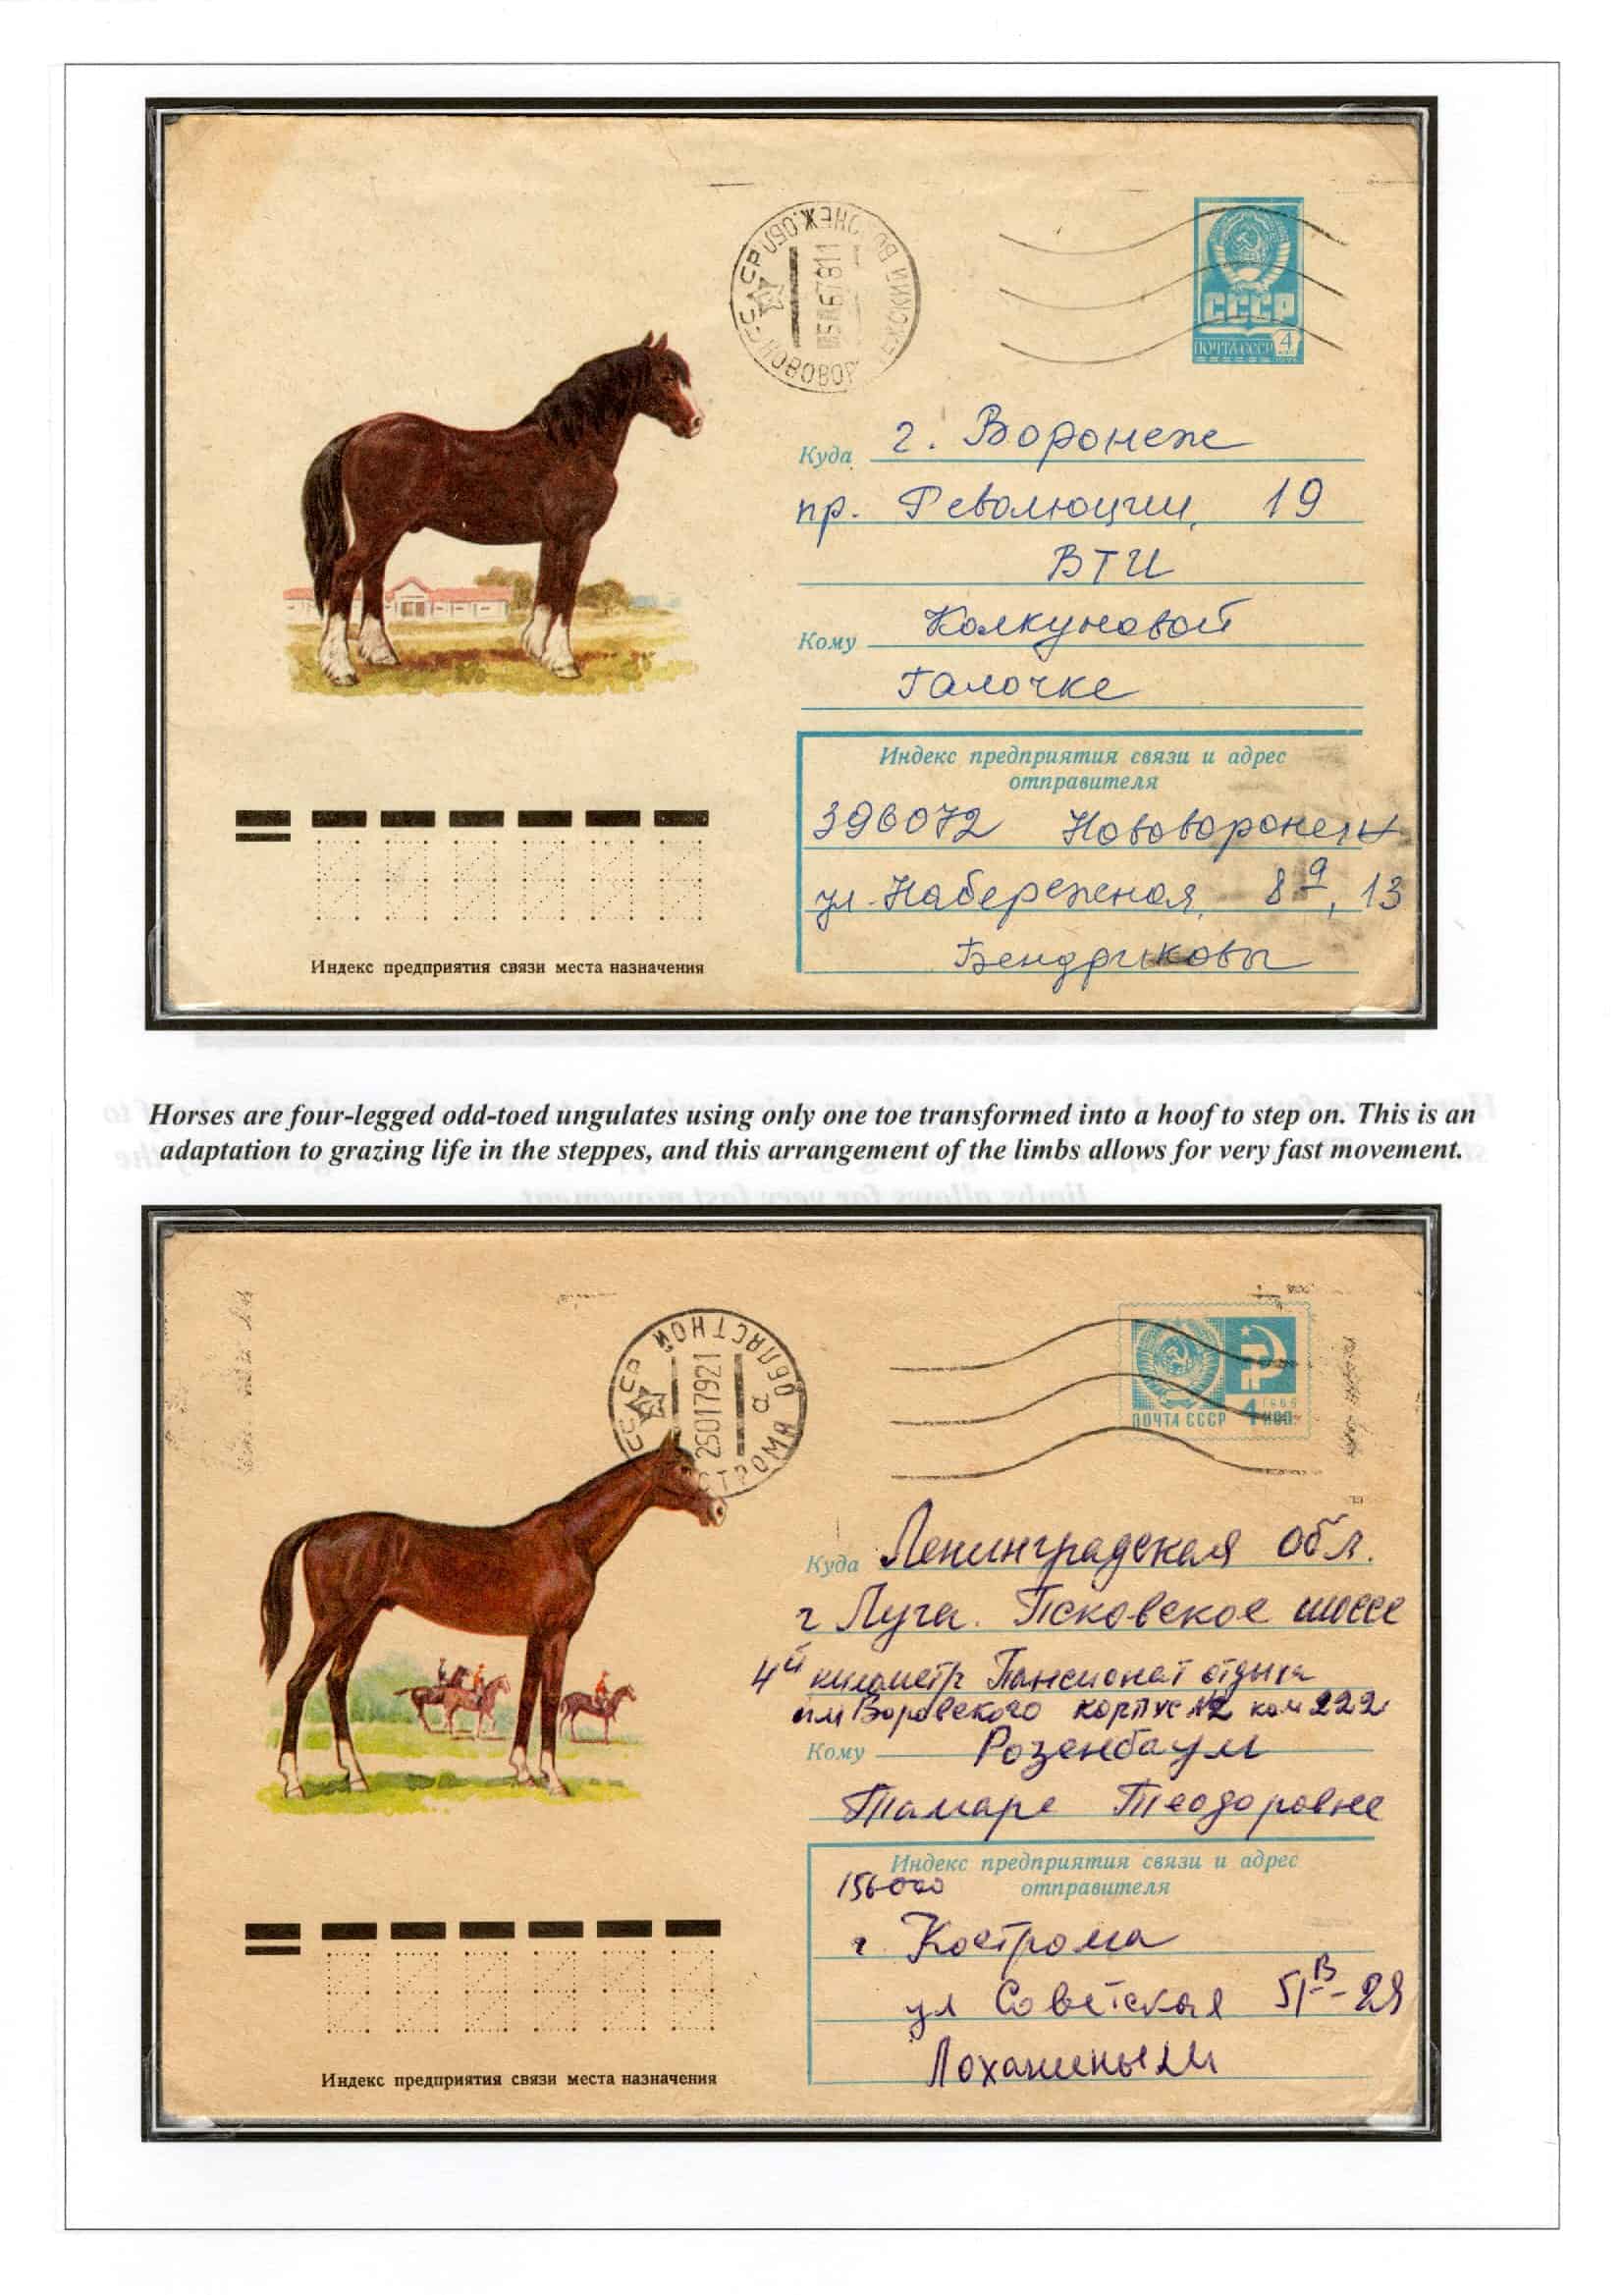 СССР
ПОЧТА СССР 4
Куда г. Воронеж
пр. Революции, 19
ВТИ
Кому Колкуновой
Галочке
Индекс предприятия связи и адрес
отправителя
396072 Нововоронеж
ул. Набережная, 8а, 13
Бендриковы
Индекс предприятия связи места назначения
Horses are four-legged odd-toed ungulates using only one toe transformed into a hoof to step on. This is an
adaptation to grazing life in the steppes, and this arrangement of the limbs allows for very fast movement.
СССР
ОБЛАСТНОЙ
25017921
а
ПОЧТА СССР 4 1966 КОП
Куда Ленинградская обл.
г Луга. Псковское шоссе
4й километр Пансионат отдыха
им Воровского корпус №2 ком 222
Кому Розенбаум
Тамаре Теодоровне
Индекс предприятия связи и адрес
156000 отправителя
г Кострома
ул Советская 51В-29
Индекс предприятия связи места назначения